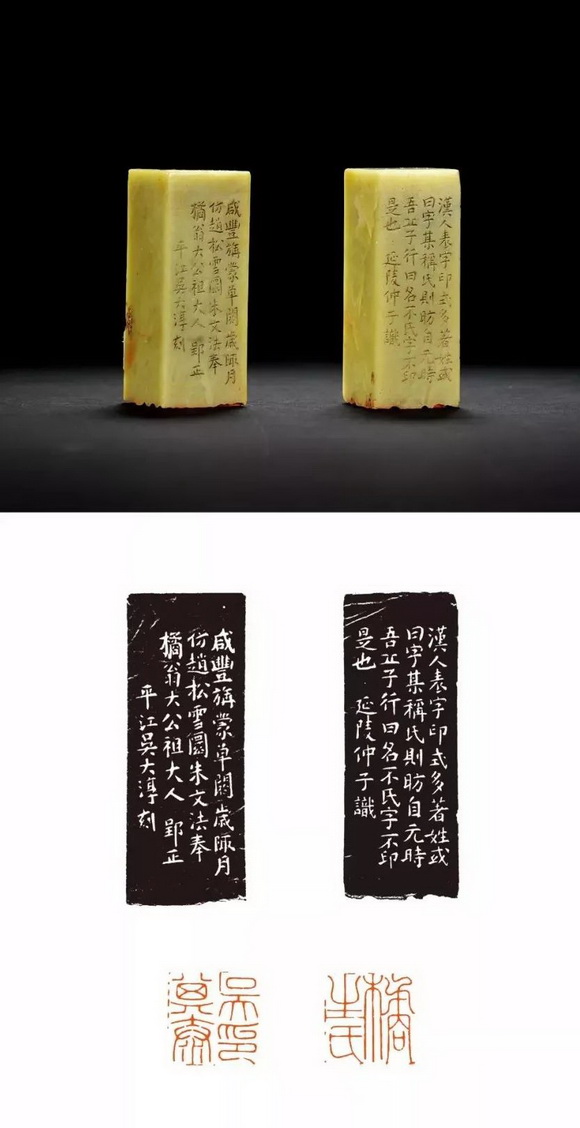 咸豐旃蒙單閼歲陬月
仿趙松雪圜朱文法奉
橘翁大公祖大人 郢正
平江吳大淳刻
漢人表字印式多著姓或
曰字某稱氏則昉自元時
吾丘子行曰名不氏字不印
是也 延陵仲子識
咸豐旃蒙單閼歲陬月
仿趙松雪圜朱文法奉
橘翁大公祖大人 郢正
平江吳大淳刻
漢人表字印式多著姓或
曰字某稱氏則昉自元時
吾丘子行曰名不氏字不印
是也 延陵仲子識
吳印
橘
生氏